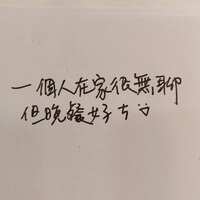 一個人在家很無聊
但晚餐好ㄘ